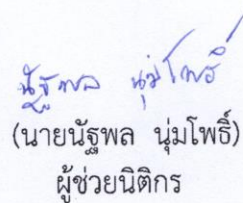 นัฐพล นุ่มโพธิ์
(นายนัฐพล นุ่มโพธิ์)
ผู้ช่วยนิติกร